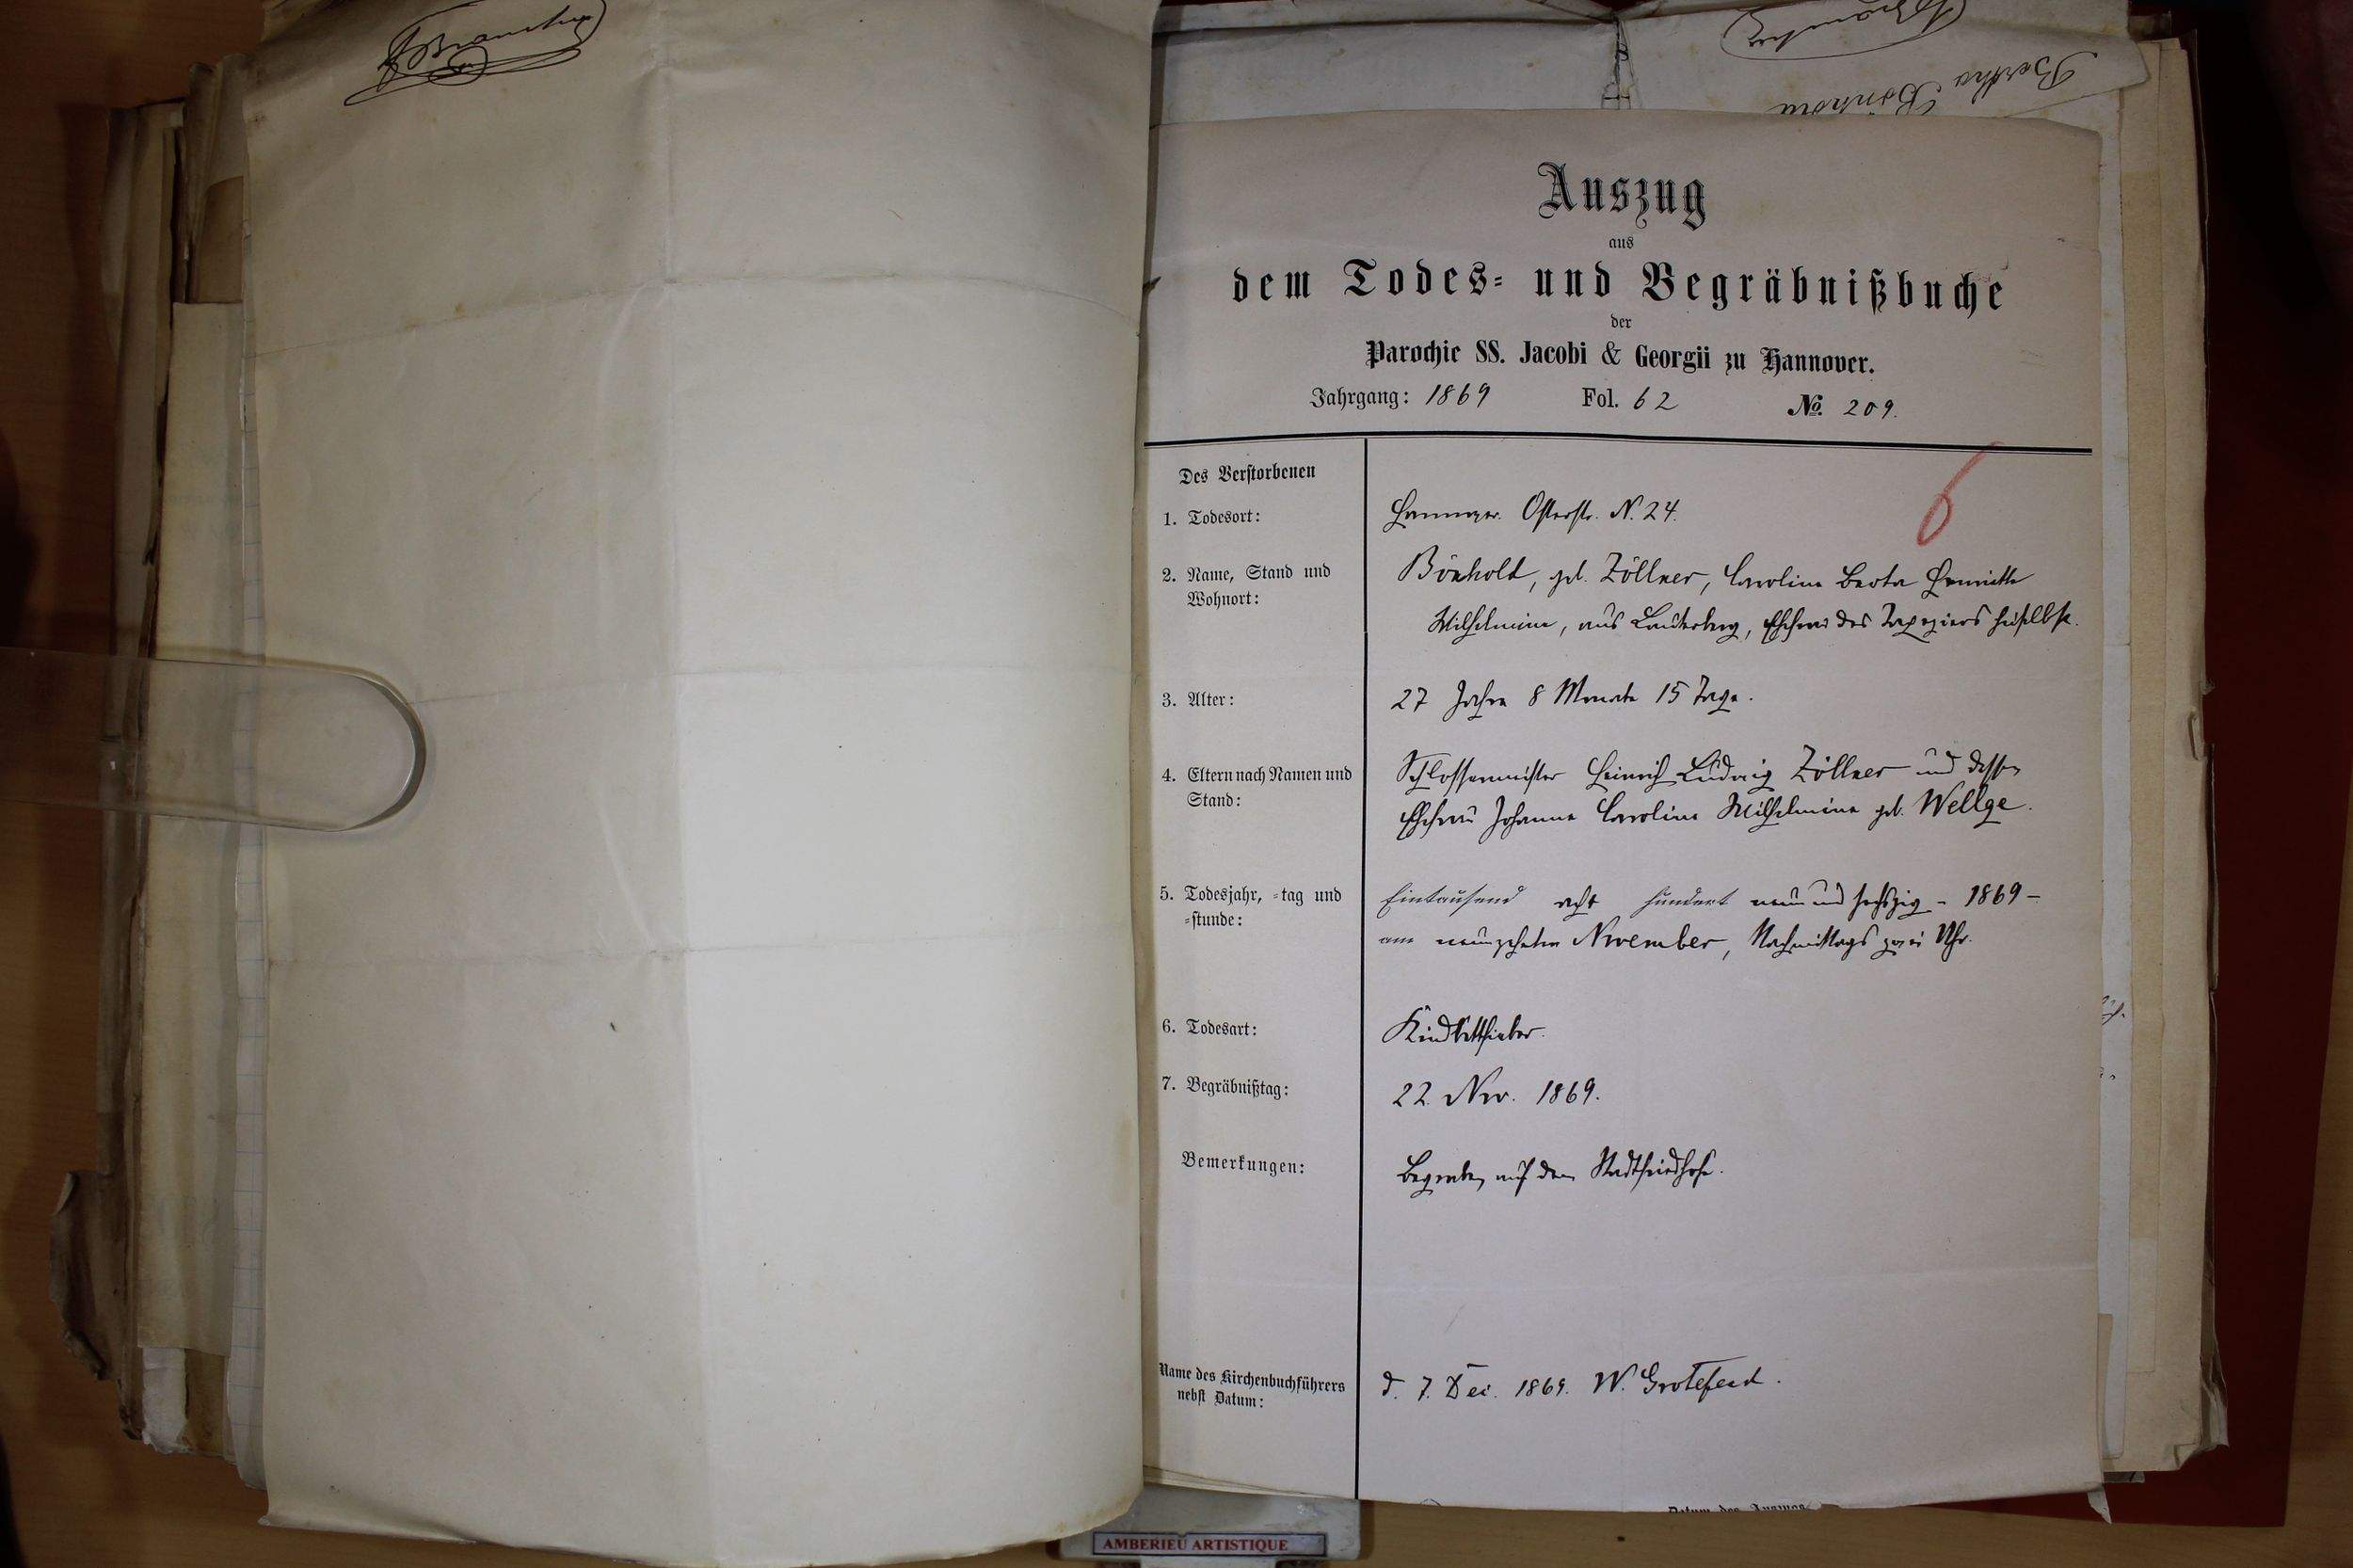 Auszug
aus
dem Todes- und Begräbnißbuche
der
Parochie SS. Jacobi & Georgii zu Hannover.
Jahrgang: 1869 Fol. 62 No. 209.
6
Des Verstorbenen
1. Todesort: Hannover. Osterstr. N. 24.
2. Name, Stand und Wohnort: Bönhold, geb. Zöllner, Caroline Berta Henriette
Wilhelmine, aus Lauterberg, Ehefrau des Tapeziers hieselbst.
3. Alter: 27 Jahre 8 Monate 15 Tage.
4. Eltern nach Namen und Stand: Schlossermeister Heinrich Ludwig Zöllner und dessen
Ehefrau Johanne Caroline Wilhelmine geb. Wellge.
5. Todesjahr, -tag und -stunde: Eintausend acht hundert neun und sechszig - 1869 -
am neunzehnten November, Nachmittags zwei Uhr.
6. Todesart: Kindbettfieber.
7. Begräbnißtag: 22. Nov. 1869.
Bemerkungen: Begraben auf dem Stadtfriedhofe.
Name des Kirchenbuchführers nebst Datum: d. 7. Dec. 1869. W. Grotefend.
AMBERIEU ARTISTIQUE